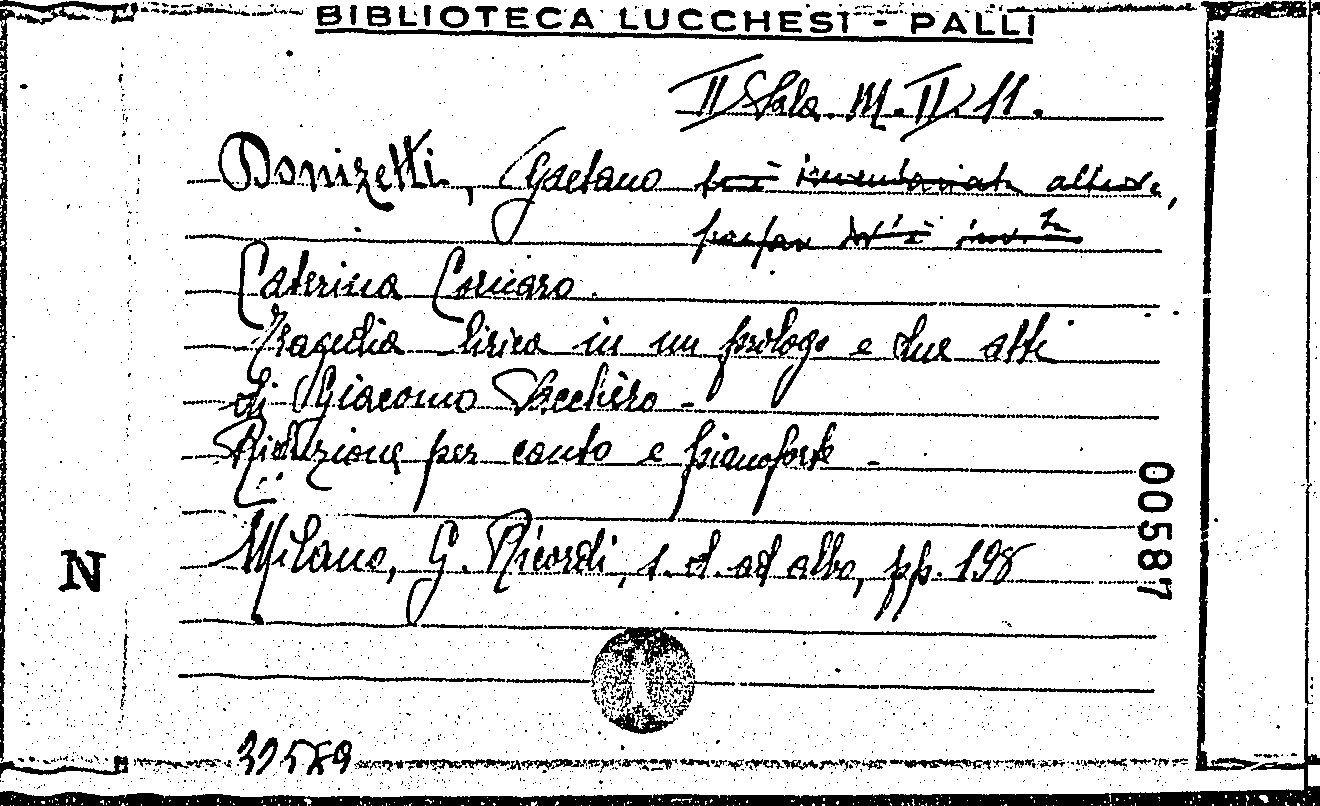 BIBLIOTECA LUCCHESI - PALLI
II Sala. M. IV. 11.
Donizetti, Gaetano
Caterina Cornaro.
Tragedia lirica in un prologo e due atti
di Giacomo Sacchèro -
Riduzione per canto e pianoforte -
Milano, G. Ricordi, s. d. ad albo, pp. 198
00587
N
32589